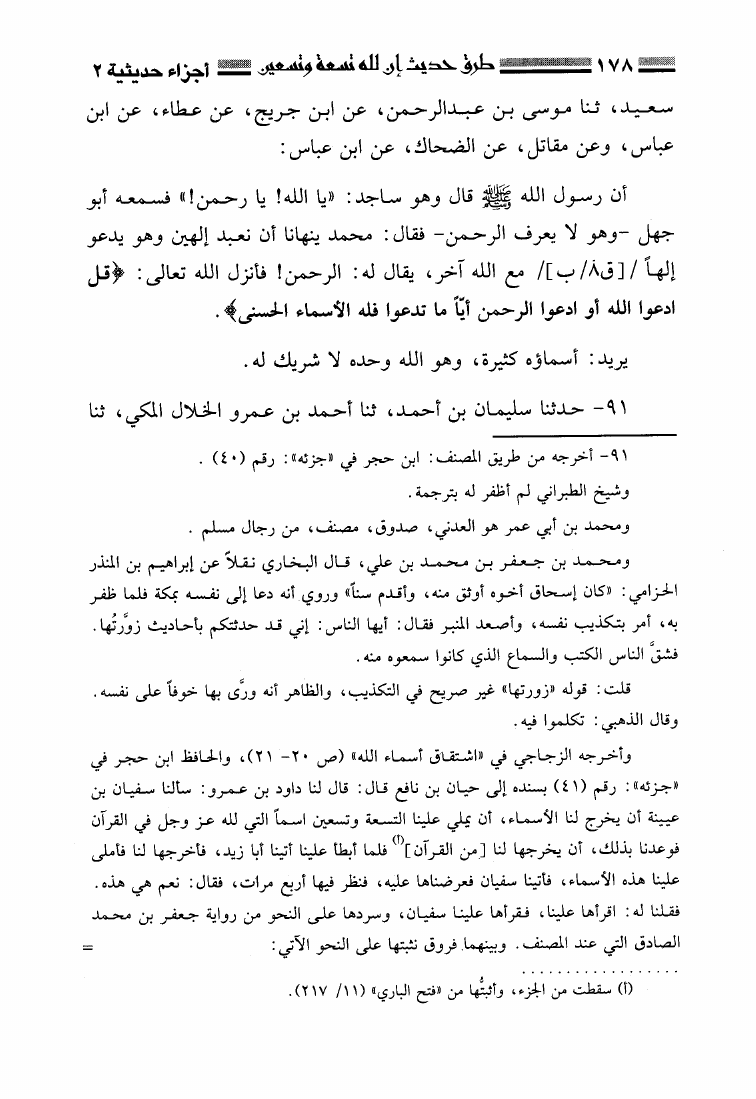 ١٧٨ طرق حديث إن لله تسعة وتسعين أجزاء حديثية ٢
سعيد، ثنا موسى بن عبدالرحمن، عن ابن جريج، عن عطاء، عن ابن
عباس، وعن مقاتل، عن الضحاك، عن ابن عباس:
أن رسول الله ﷺ قال وهو ساجد: «يا الله! يا رحمن!» فسمعه أبو
جهل -وهو لا يعرف الرحمن- فقال: محمد ينهانا أن نعبد إلهين وهو يدعو
إلهاً /[ق٨/ ب]/ مع الله آخر، يقال له: الرحمن! فأنزل الله تعالى: ﴿قل
ادعوا الله أو ادعوا الرحمن أيّاً ما تدعوا فله الأسماء الحسنى﴾.
يريد: أسماؤه كثيرة، وهو الله وحده لا شريك له.
٩١- حدثنا سليمان بن أحمد، ثنا أحمد بن عمرو الخلال المكي، ثنا
٩١- أخرجه من طريق المصنف: ابن حجر في «جزئه»: رقم (٤٠) .
وشيخ الطبراني لم أظفر له بترجمة.
ومحمد بن أبي عمر هو العدني، صدوق، مصنف، من رجال مسلم .
ومحمد بن جعفر بن محمد بن علي، قال البخاري نقلاً عن إبراهيم بن المنذر
الحزامي: «كان إسحاق أخوه أوثق منه، وأقدم سناً» وروي أنه دعا إلى نفسه بمكة فلما ظفر
به، أمر بتكذيب نفسه، وأصعد المنبر فقال: أيها الناس: إني قد حدثتكم بأحاديث زوَّرتُها.
فشقَّ الناس الكتب والسماع الذي كانوا سمعوه منه.
قلت: قوله «زورتها» غير صريح في التكذيب، والظاهر أنه ورَّى بها خوفاً على نفسه.
وقال الذهبي: تكلموا فيه.
وأخرجه الزجاجي في «اشتقاق أسماء الله» (ص ٢٠- ٢١)، والحافظ ابن حجر في
«جزئه»: رقم (٤١) بسنده إلى حيان بن نافع قال: قال لنا داود بن عمرو: سألنا سفيان بن
عيينة أن يخرج لنا الأسماء، أن يملي علينا التسعة وتسعين اسماً التي لله عز وجل في القرآن
فوعدنا بذلك، أن يخرجها لنا [من القرآن](أ) فلما أبطأ علينا أتينا أبا زيد، فأخرجها لنا فأملى
علينا هذه الأسماء، فأتينا سفيان فعرضناها عليه، فنظر فيها أربع مرات، فقال: نعم هي هذه.
فقلنا له: اقرأها علينا، فقرأها علينا سفيان، وسردها على النحو من رواية جعفر بن محمد
الصادق التي عند المصنف. وبينهما فروق نثبتها على النحو الآتي: =
(أ) سقطت من الجزء، وأثبتُّها من «فتح الباري» (١١/ ٢١٧).